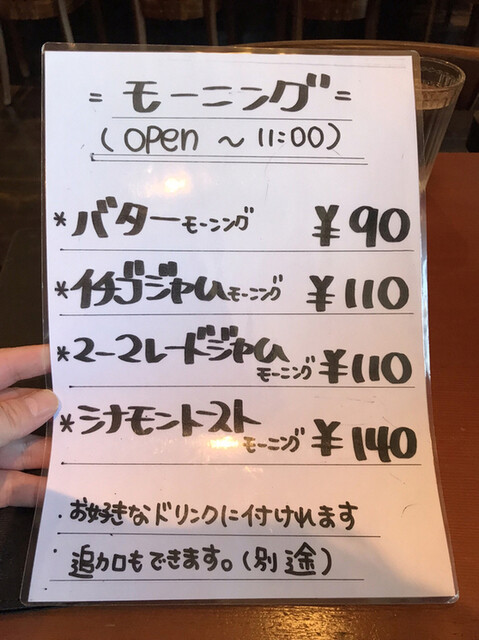 = モーニング =
(OPEn ～ 11:00)
* バターモーニング ¥90
* イチゴジャムモーニング ¥110
* マーマレードジャムモーニング ¥110
* シナモントーストモーニング ¥140
・お好きなドリンクに付けれます
・追加もできます。(別途)